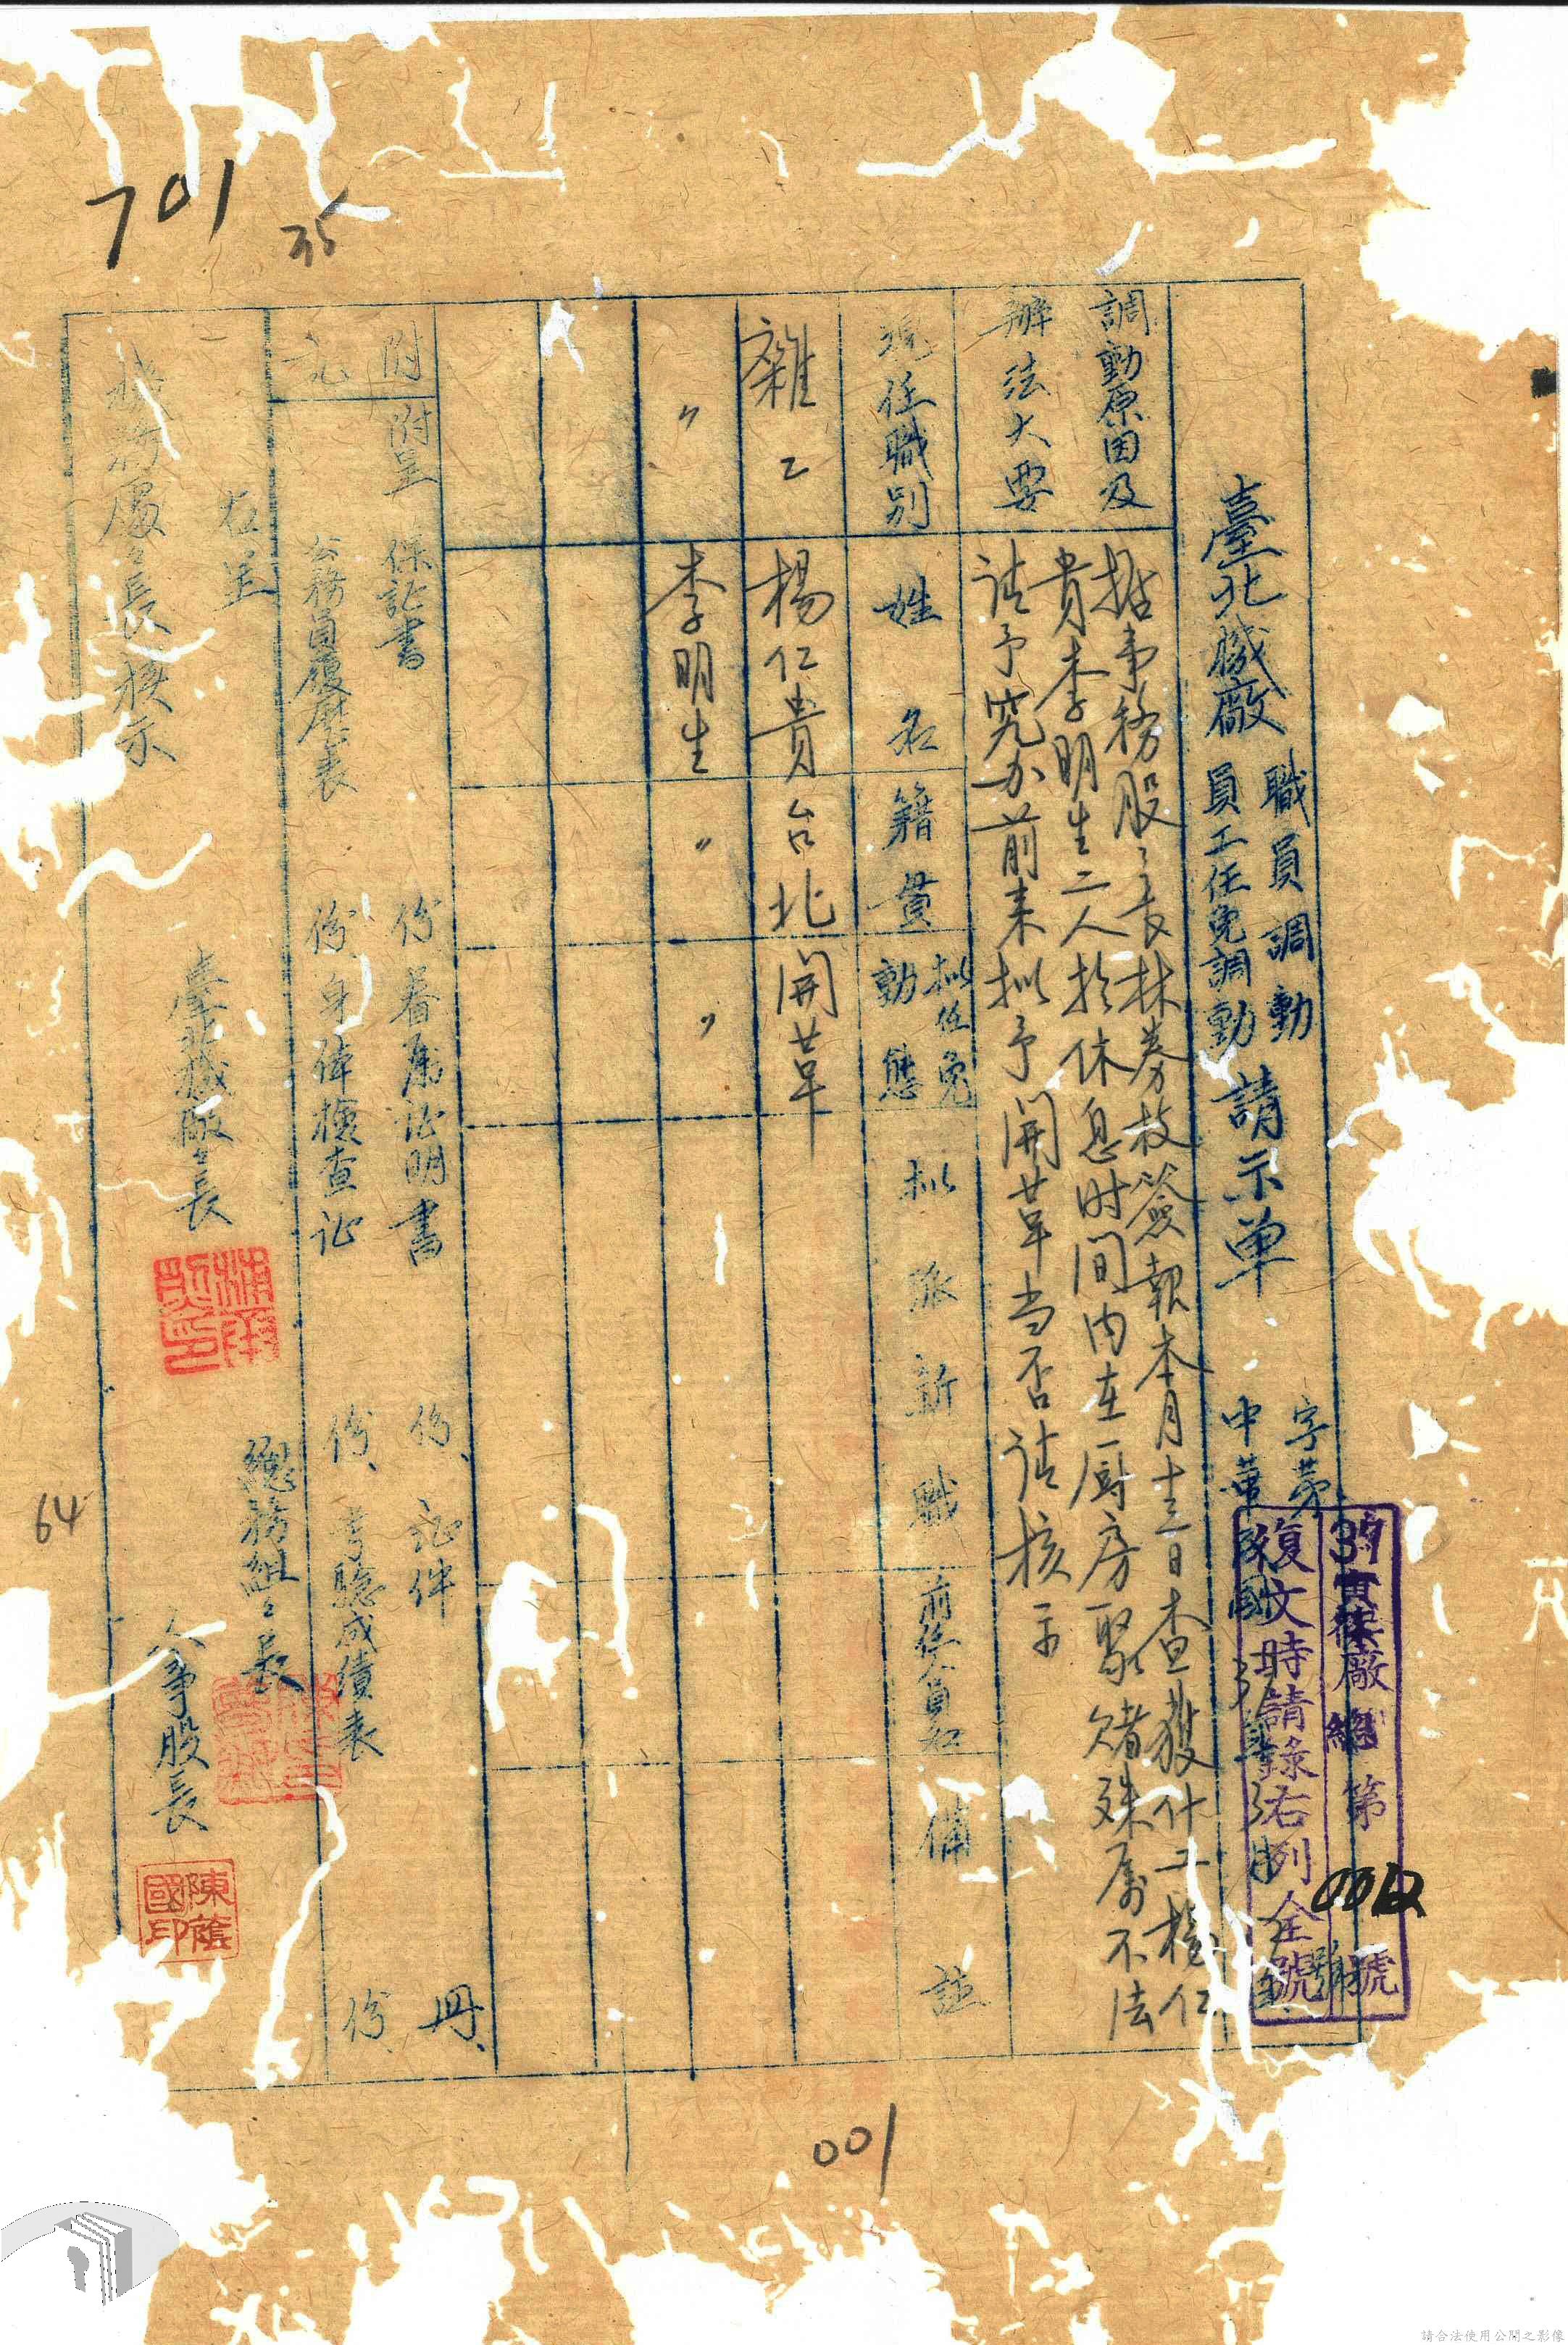 臺北機廠 職員調動 員工任免調動 請示單
字第 號
中華民國37年3月 日
37實秼廠總第 號
復文時請錄右列全號
調動原因及
辦法大要
据事務股々長林券枝簽報本月十三日查獲什工楊仁
貴李明生二人於休息时間内在厨房聚賭殊屬不法
請予究办前来拟予開革当否請核示
現任職別
姓名
籍貫
拟任免
動態
拟派新職
前任人員名
備註
雜工
楊仁貴
台北
開革
〃
李明生
〃
〃
附
記
附呈
保証書
份
眷屬证明書
份、
证件
冊、
公務員履歷表
份、
身体檢查证
份、
考驗成績表
份、
右呈
機務處々長核示
臺北機廠々長
總務組々長
人事股長
陳蔭國印
701
35
64
001
請合法使用公開之影像